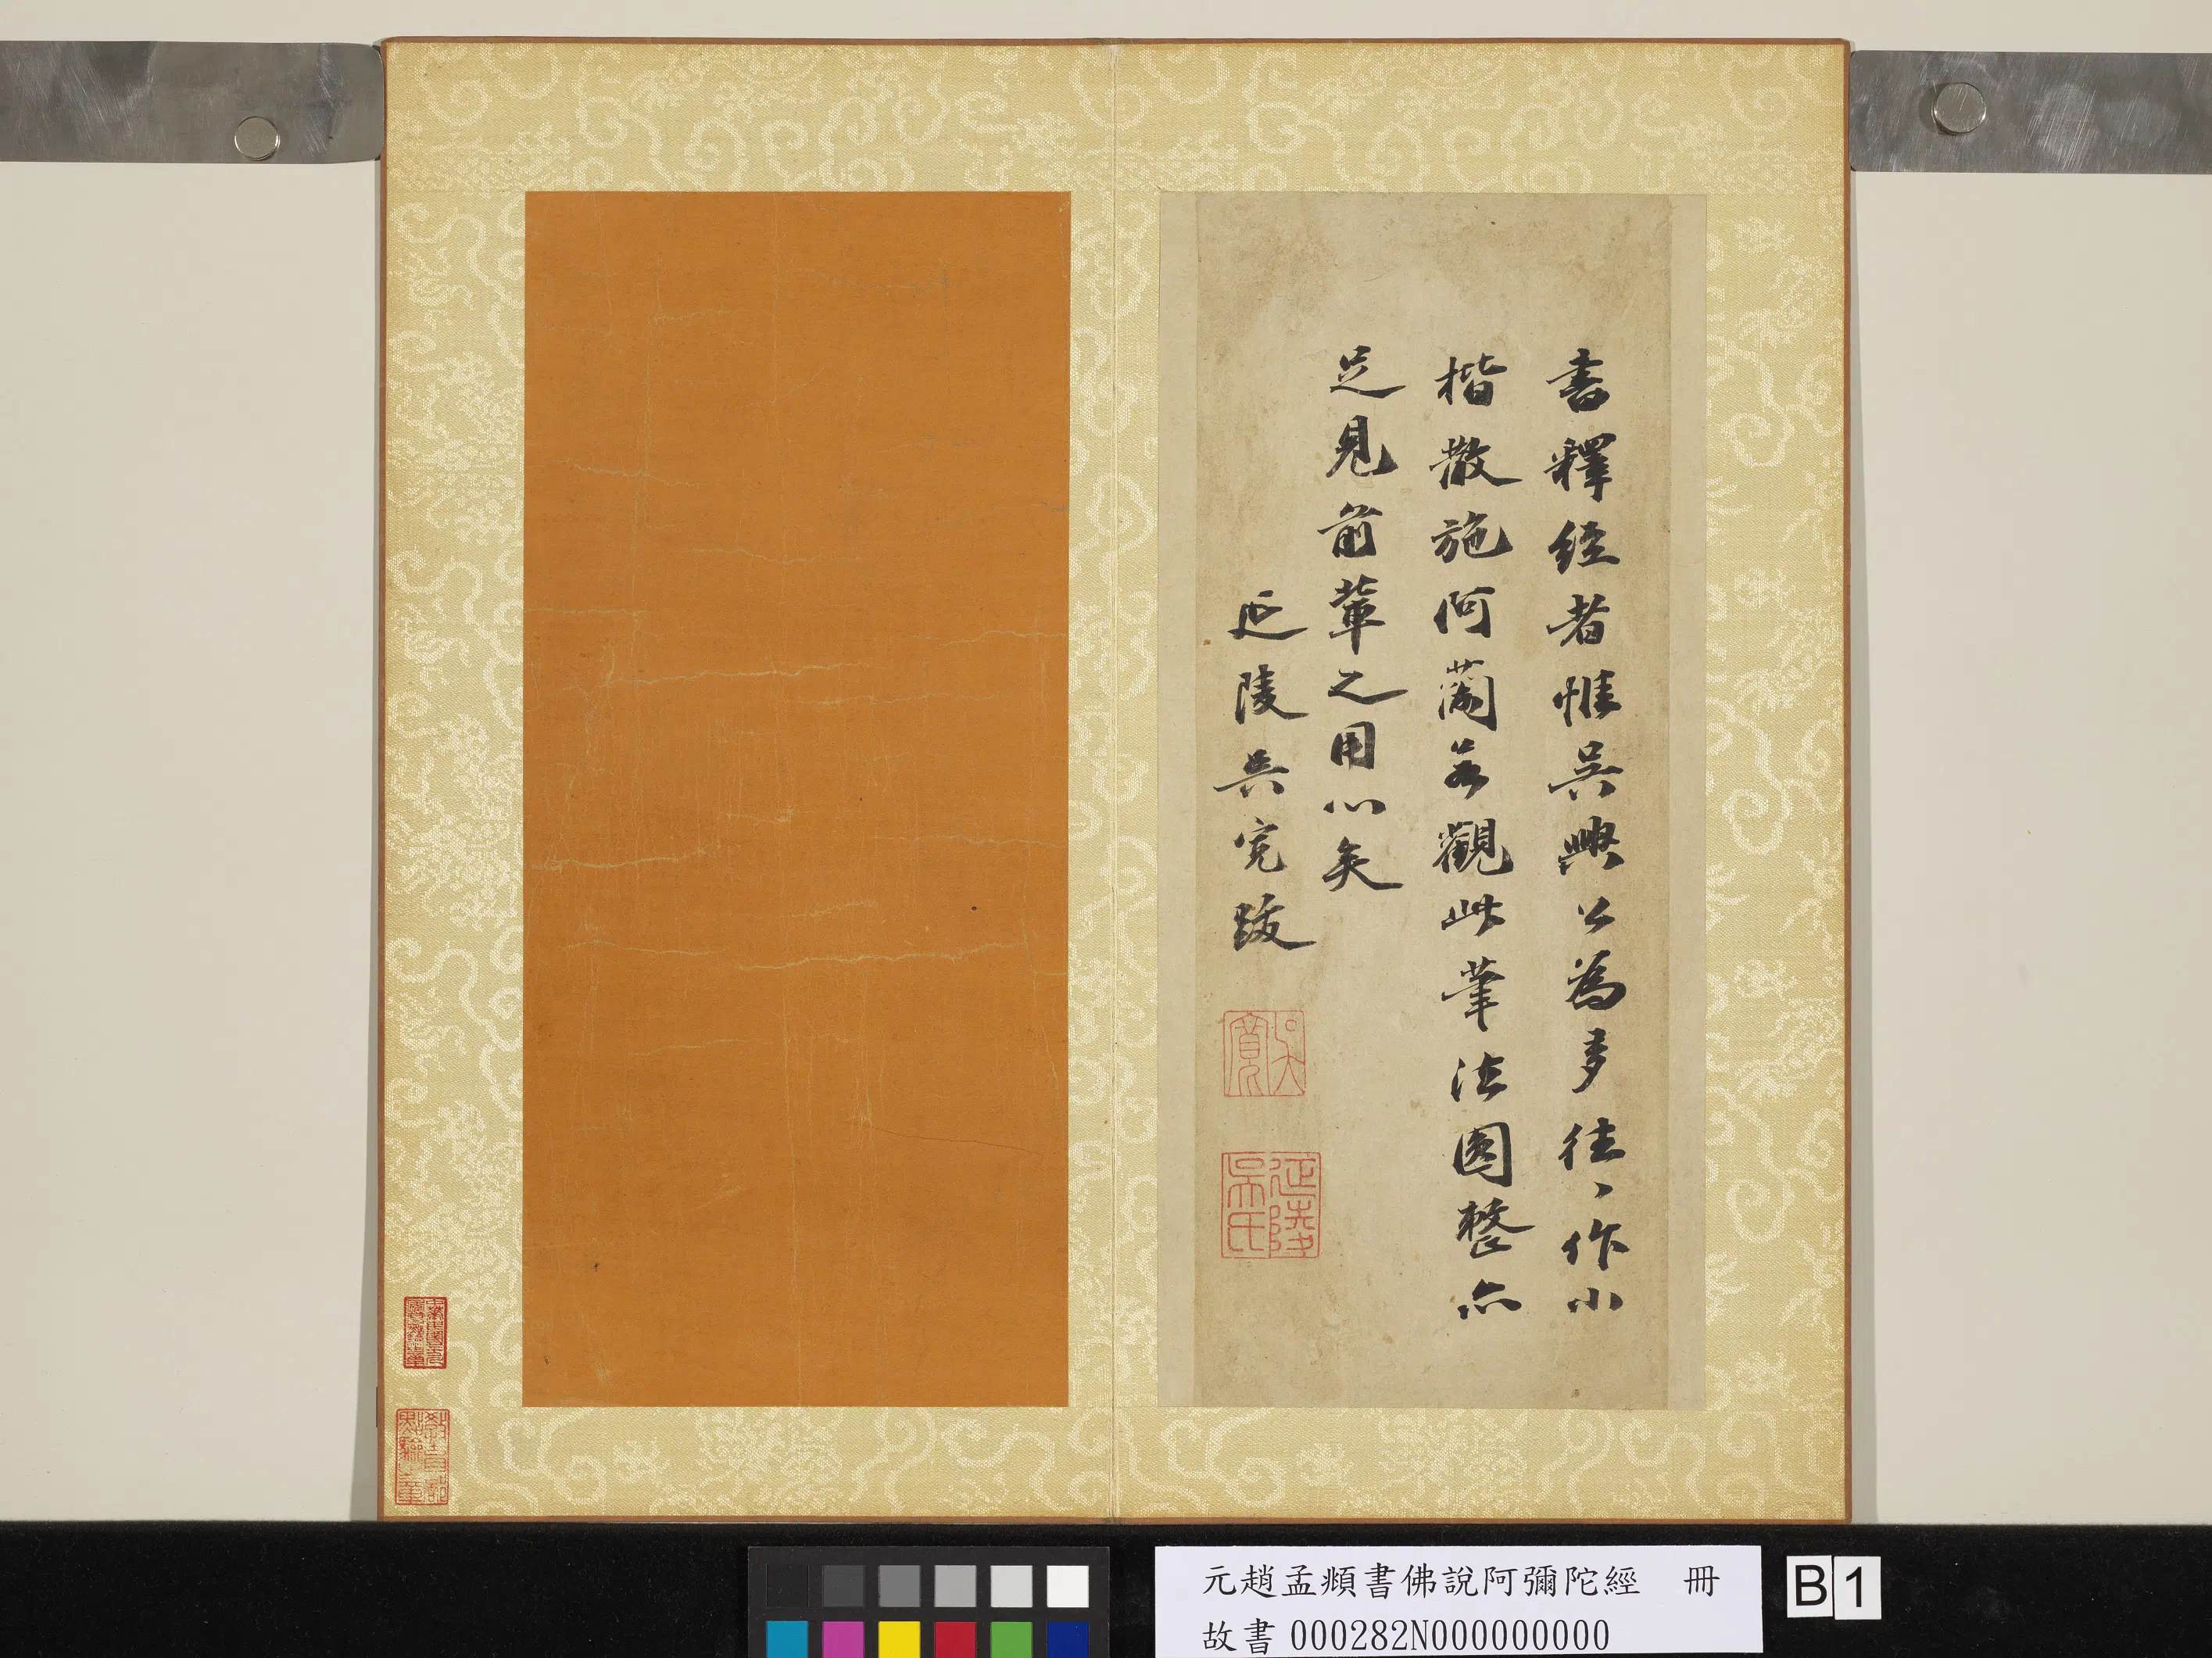 書釋經者惟吳興公為多往〻作小
楷散施阿蘭若觀此筆法圓整亦
足見前輩之用心矣
延陵吳寬跋
吳寬
延陵吳氏
教育部點驗之章
元趙孟頫書佛說阿彌陀經 冊
故書 000282N000000000
B1